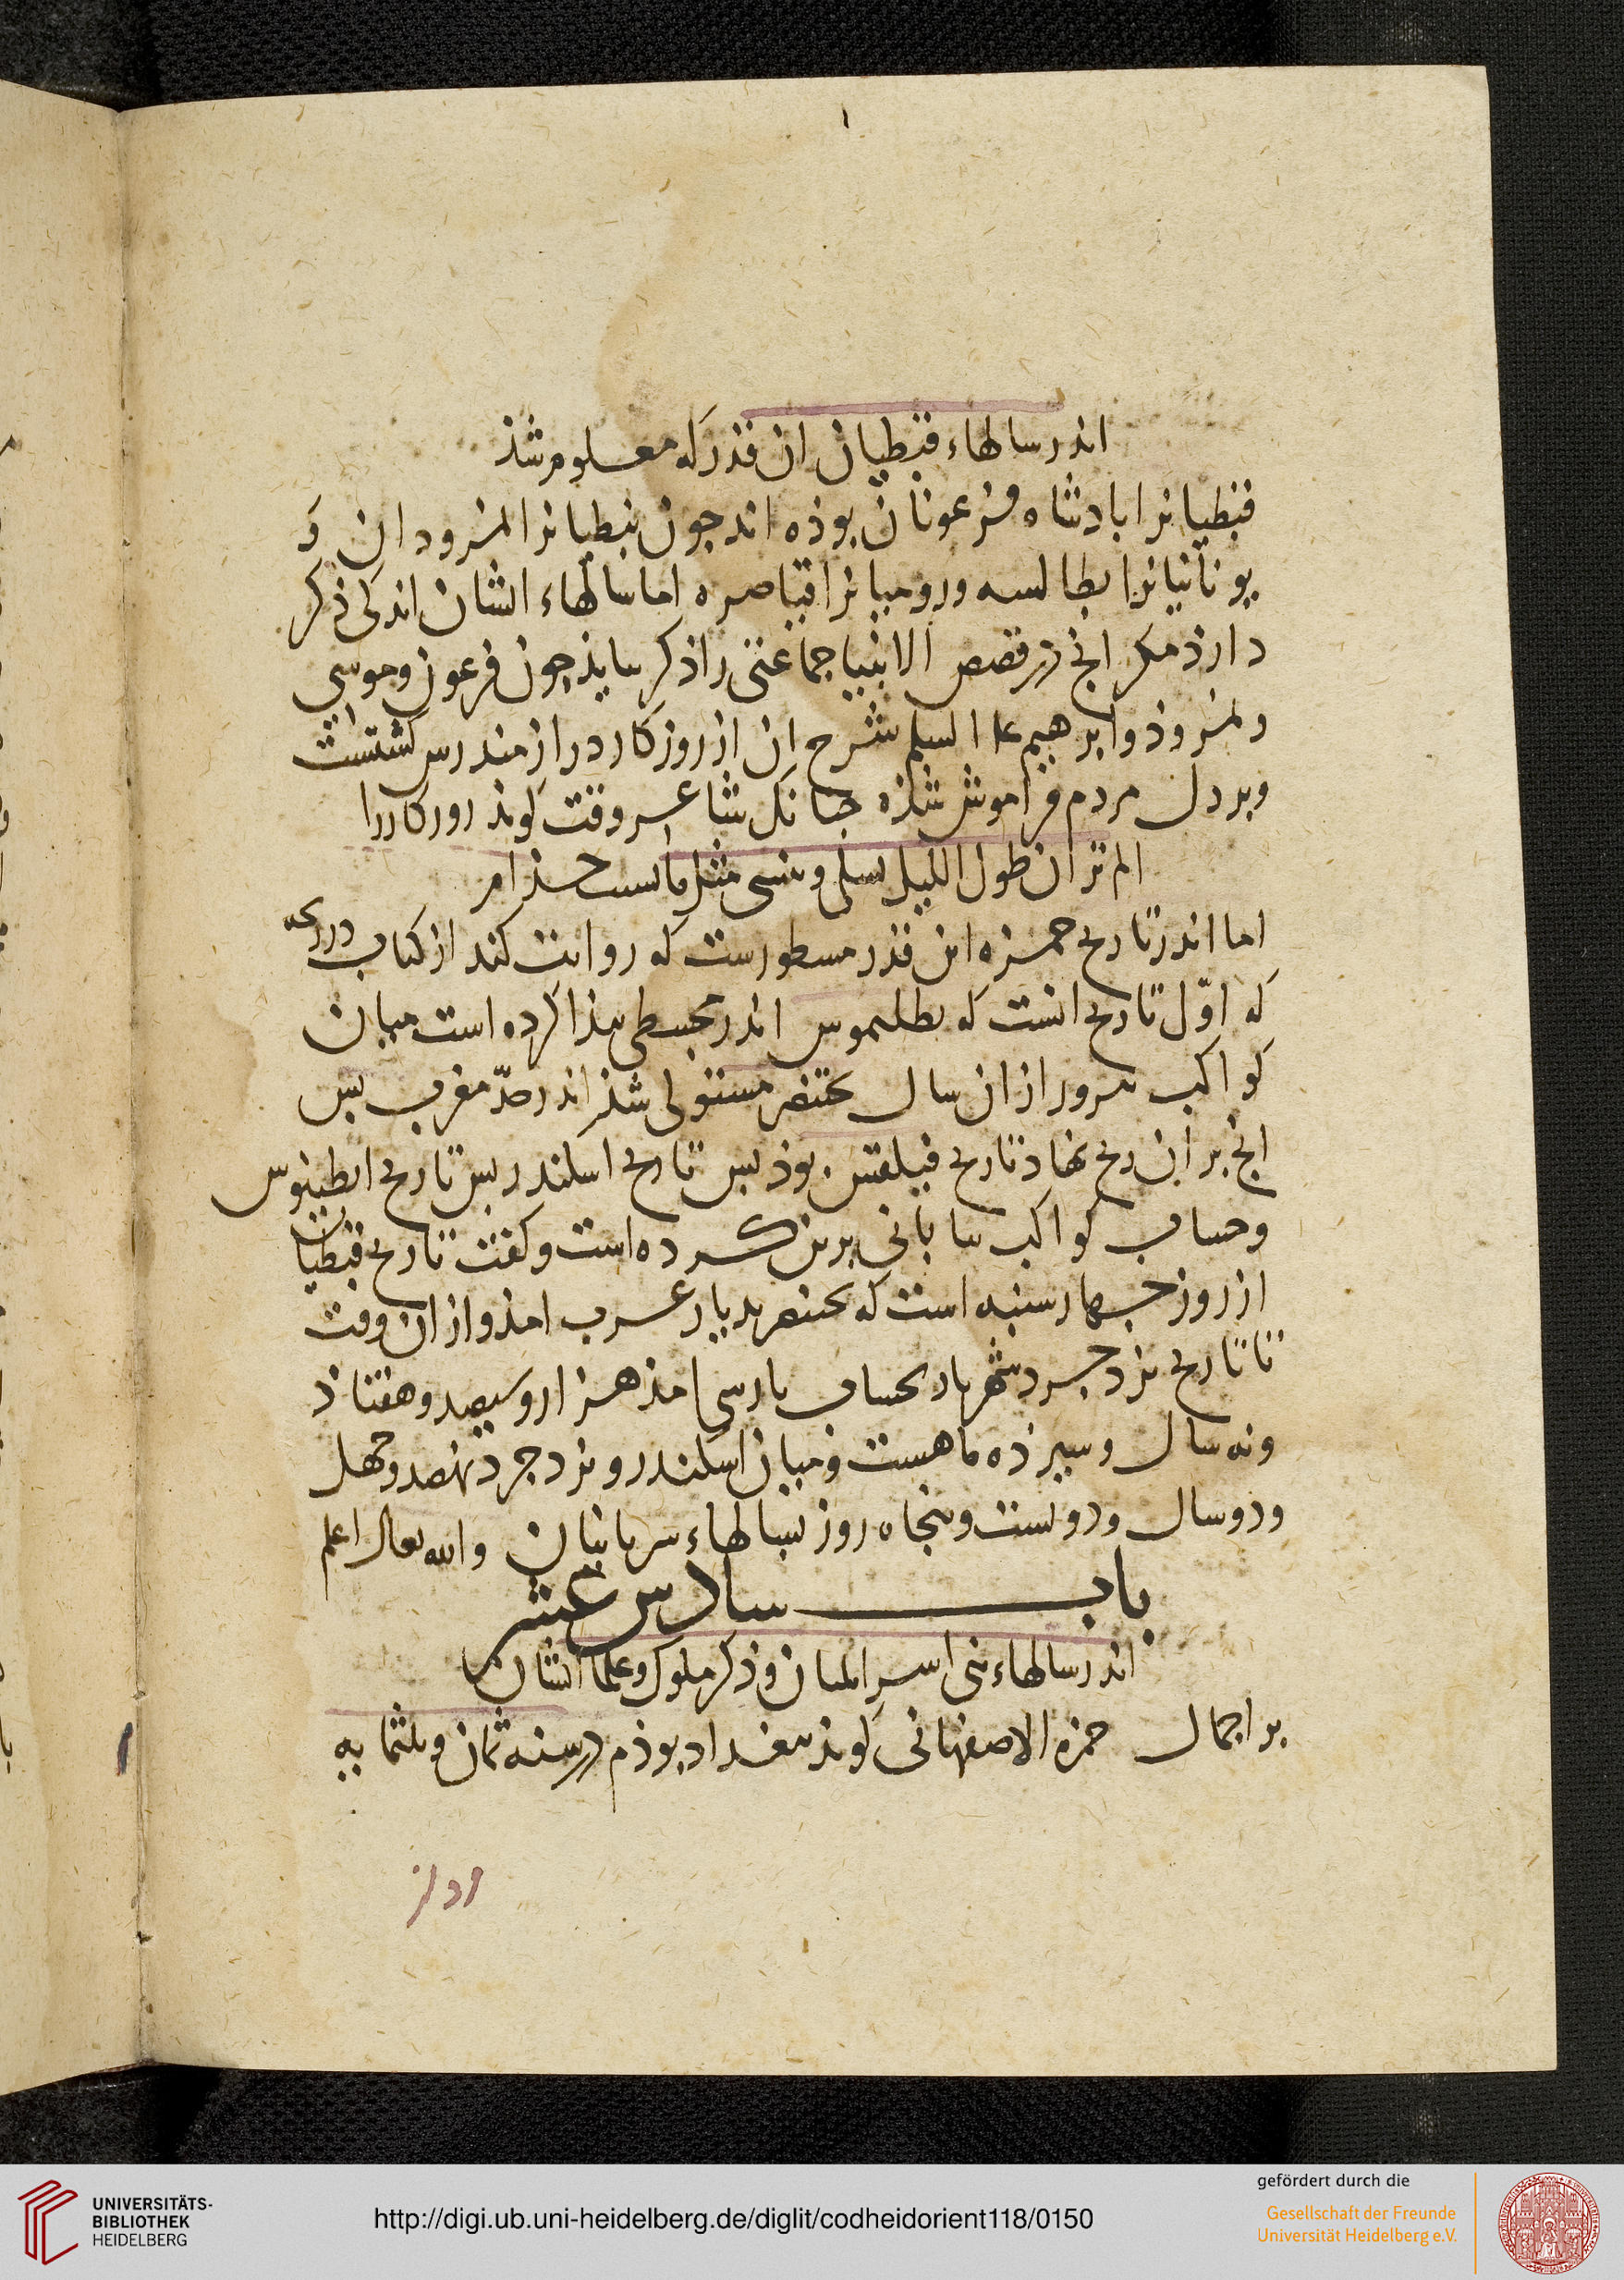 ۱
اندر سالهاء قبطیان ان قذر که معلوم شذ
قبطیانرا بادشاه فرعونان بوذه اند جون نبطیانرا النمرودان و
یونانیانرا بطالسه ورومیانرا قیاصره اما سالهاء ایشان اندکی ذکر
دارذ مکر انج در قصص الانبیا جماعتی را ذکر بیایذ جون فرعون وموسی
ونمروذ وابرهیم علیه السلم شرح ان از روزکار دراز مندرس کشتست
وبر دل مردم فراموش شذه جنانک شاعر وقت کوید روزکاررا
الم تر ان طول اللیل یسلی وینسی مثل ما نسیت جذام
اما اندر تاریخ حمزه این قذر مسطورست که روایت کند از کتاب در زیجه
که اوّل تاریخ انست که بطلیموس اندر مجسطی بیذا کرده است میان
کواکب بیرون از ان سال بختنصر مستولی شذ اندر حدّ مغرب بس
انج بر ان زیج نهاذ تاریخ فیلفس بوذ بس تاریخ اسکندر بس تاریخ انطینوس
وحساب کواکب بیابانی برین کرده است وکفت تاریخ قبطیان
از روز جهارشنبه است که بختنصر بدیار عرب امذ واز ان وقت
تا تاریخ یزدجرد شهریار بحساب بارسی امذ هزار وسیصد وهفتاذ
ونه سال وسیزذه ماهست ومیان اسکندر ویزدجرد نهصد وجهل
ودو سال ودویست وبنجاه روز بسالهاء سریانیان والله تعالی اعلم
باب سادس عشر
اندر سالهاء بنی اسرایلیان وذکر ملوک وعلما ایشان
بر اجمال حمزة الاصفهانی کوید ببغداد بوذم در سنه ثمان وثلثمایه
از
UNIVERSITÄTS-
BIBLIOTHEK
HEIDELBERG
http://digi.ub.uni-heidelberg.de/diglit/codheidorient118/0150
gefördert durch die
Gesellschaft der Freunde
Universität Heidelberg e.V.